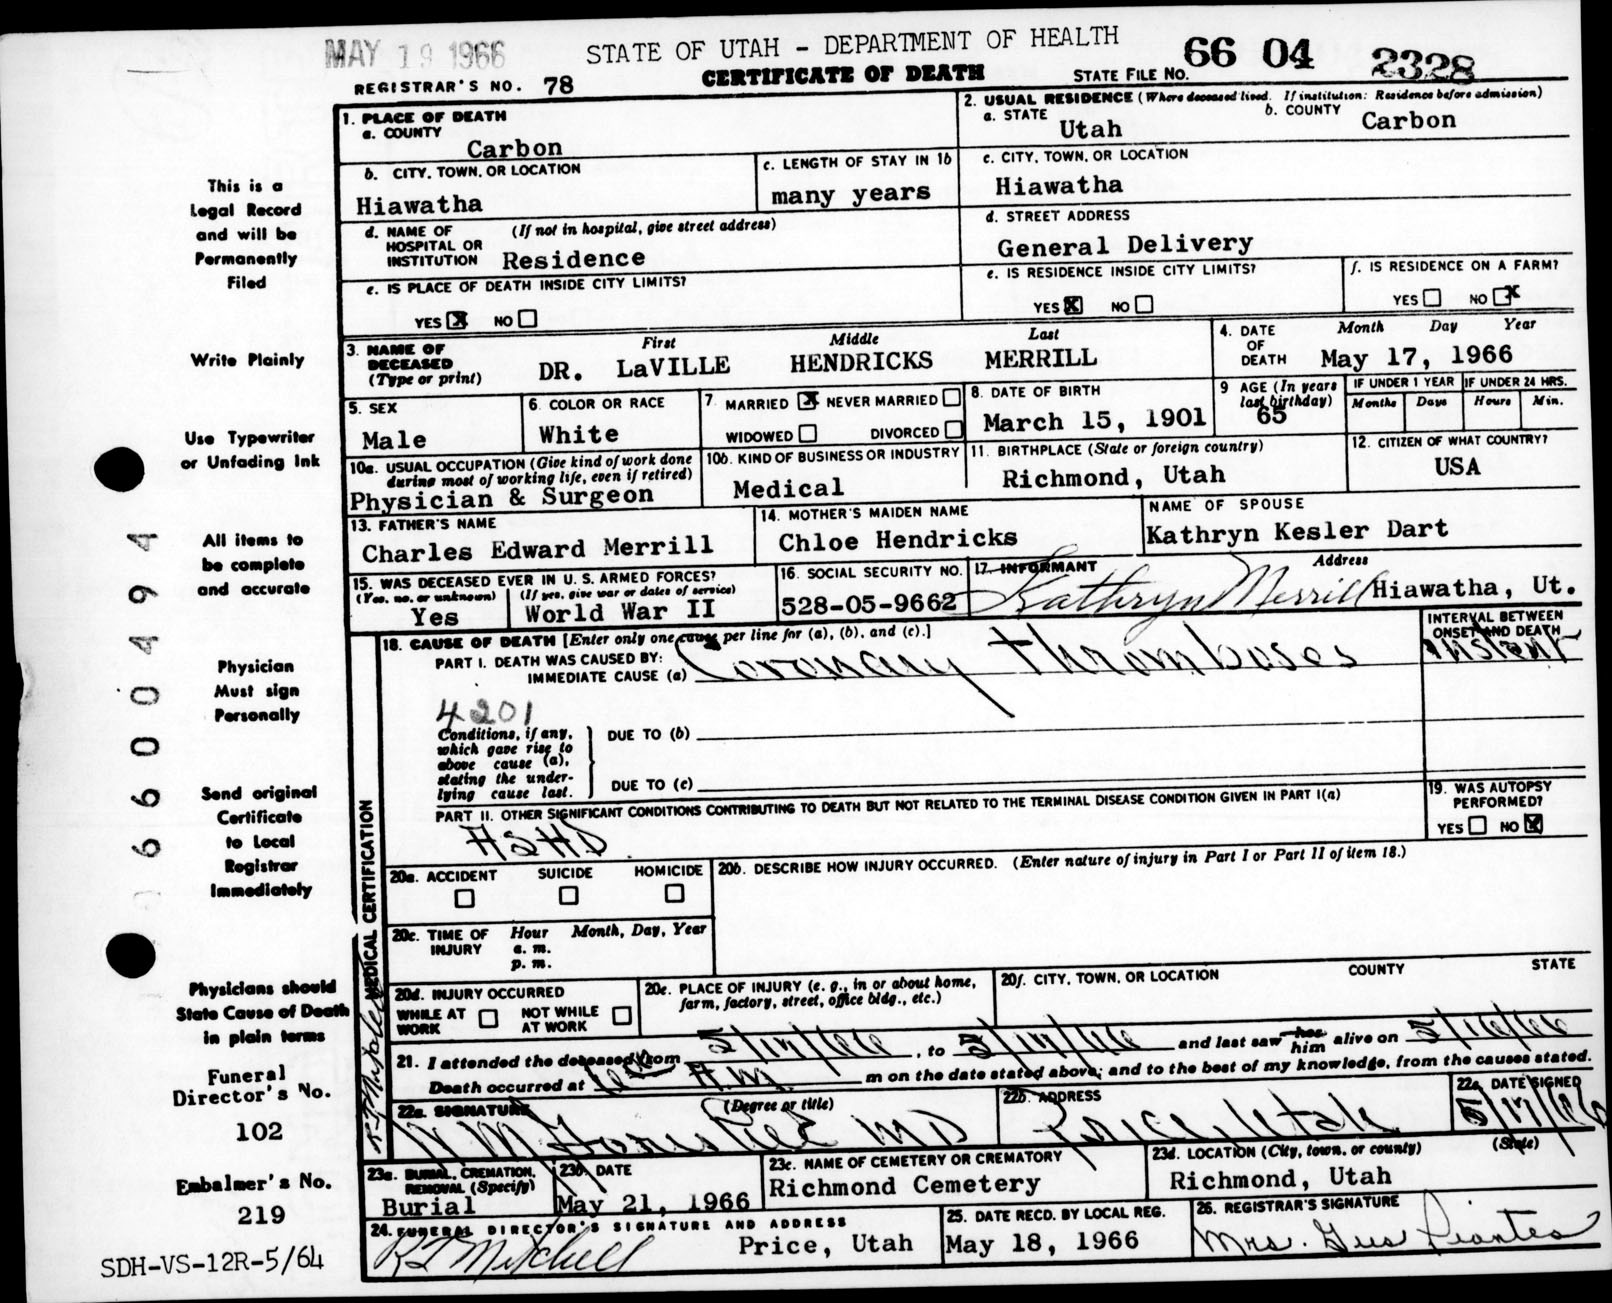 MAY 19 1966
STATE OF UTAH - DEPARTMENT OF HEALTH
66 04 2328
REGISTRAR'S NO. 78
CERTIFICATE OF DEATH
STATE FILE NO.
1. PLACE OF DEATH
a. COUNTY
Carbon
2. USUAL RESIDENCE (Where deceased lived. If institution: Residence before admission)
a. STATE
Utah
b. COUNTY
Carbon
b. CITY, TOWN, OR LOCATION
Hiawatha
c. LENGTH OF STAY IN 1b
many years
c. CITY, TOWN, OR LOCATION
Hiawatha
d. NAME OF HOSPITAL OR INSTITUTION
(If not in hospital, give street address)
Residence
d. STREET ADDRESS
General Delivery
e. IS PLACE OF DEATH INSIDE CITY LIMITS?
YES X NO
e. IS RESIDENCE INSIDE CITY LIMITS?
YES X NO
f. IS RESIDENCE ON A FARM?
YES NO X
3. NAME OF DECEASED
(Type or print)
First Middle Last
DR. LaVILLE HENDRICKS MERRILL
4. DATE OF DEATH
Month Day Year
May 17, 1966
5. SEX
Male
6. COLOR OR RACE
White
7. MARRIED X NEVER MARRIED
WIDOWED DIVORCED
8. DATE OF BIRTH
March 15, 1901
9 AGE (In years last birthday)
65
IF UNDER 1 YEAR
Months Days
IF UNDER 24 HRS.
Hours Min.
10a. USUAL OCCUPATION (Give kind of work done during most of working life, even if retired)
Physician & Surgeon
10b. KIND OF BUSINESS OR INDUSTRY
Medical
11. BIRTHPLACE (State or foreign country)
Richmond, Utah
12. CITIZEN OF WHAT COUNTRY?
USA
13. FATHER'S NAME
Charles Edward Merrill
14. MOTHER'S MAIDEN NAME
Chloe Hendricks
NAME OF SPOUSE
Kathryn Kesler Dart
15. WAS DECEASED EVER IN U. S. ARMED FORCES?
(Yes, no, or unknown) (If yes, give war or dates of service)
Yes World War II
16. SOCIAL SECURITY NO.
528-05-9662
17. INFORMANT
Address
Kathryn Merrill Hiawatha, Ut.
18. CAUSE OF DEATH [Enter only one cause per line for (a), (b), and (c).]
PART I. DEATH WAS CAUSED BY:
IMMEDIATE CAUSE (a) Coronary thromboses
INTERVAL BETWEEN ONSET AND DEATH
Instent
4201
Conditions, if any, which gave rise to above cause (a), stating the underlying cause last.
DUE TO (b)
DUE TO (c)
PART II. OTHER SIGNIFICANT CONDITIONS CONTRIBUTING TO DEATH BUT NOT RELATED TO THE TERMINAL DISEASE CONDITION GIVEN IN PART I(a)
ASHD
19. WAS AUTOPSY PERFORMED?
YES NO X
MEDICAL CERTIFICATION
20a. ACCIDENT SUICIDE HOMICIDE
20b. DESCRIBE HOW INJURY OCCURRED. (Enter nature of injury in Part I or Part II of item 18.)
20c. TIME OF INJURY
Hour Month, Day, Year
a. m.
p. m.
20d. INJURY OCCURRED
WHILE AT WORK NOT WHILE AT WORK
20e. PLACE OF INJURY (e. g., in or about home, farm, factory, street, office bldg., etc.)
20f. CITY, TOWN, OR LOCATION COUNTY STATE
21. I attended the deceased from 5/17/66, to 5/17/66 and last saw her him alive on 5/16/66
Death occurred at A.M. m on the date stated above; and to the best of my knowledge, from the causes stated.
22a. SIGNATURE
(Degree or title)
MD
22b. ADDRESS
Price, Utah
22c. DATE SIGNED
5/17/66
23a. BURIAL, CREMATION, REMOVAL (Specify)
Burial
23b. DATE
May 21, 1966
23c. NAME OF CEMETERY OR CREMATORY
Richmond Cemetery
23d. LOCATION (City, town, or county) (State)
Richmond, Utah
24. FUNERAL DIRECTOR'S SIGNATURE AND ADDRESS
Mitchell Price, Utah
25. DATE RECD. BY LOCAL REG.
May 18, 1966
26. REGISTRAR'S SIGNATURE
Mrs. Gus
This is a
Legal Record
and will be
Permanently
Filed
Write Plainly
Use Typewriter
or Unfading Ink
All items to
be complete
and accurate
Physician
Must sign
Personally
Send original
Certificate
to Local
Registrar
Immediately
Physicians should
State Cause of Death
in plain terms
Funeral
Director's No.
102
Embalmer's No.
219
SDH-VS-12R-5/64
06600494